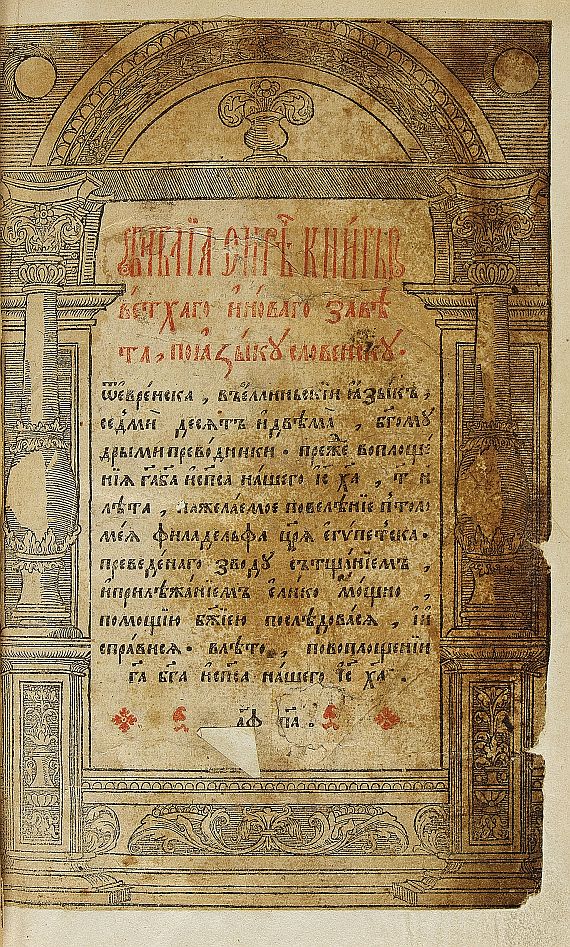 Бїблїа сирѣчь книгы
ветхаго и новаго завѣ
та, поꙗзыку словенску.
ѿ еврейска, въ еллиньскїй ꙗзыкъ,
седмїй десѧтъ и двѣма, бг҃ому
дрыми преводники. преже воплоще
нїѧ гд҃а бг҃а и сп҃са нашего іс҃ ха҃, т҃ и
лѣта, на желаемое повелѣнїе птоло
меѧ филаделфа цр҃ѧ египетска.
преведенаго зводу с тщанїемъ,
и прилѣжанїемъ елико мощно,
помощїю бж҃їею послѣдовасѧ, и и
справисѧ. влѣто, по воплощенїи
га҃ бг҃а и сп҃са нашего іс҃ ха҃.
҂аф п҃а.